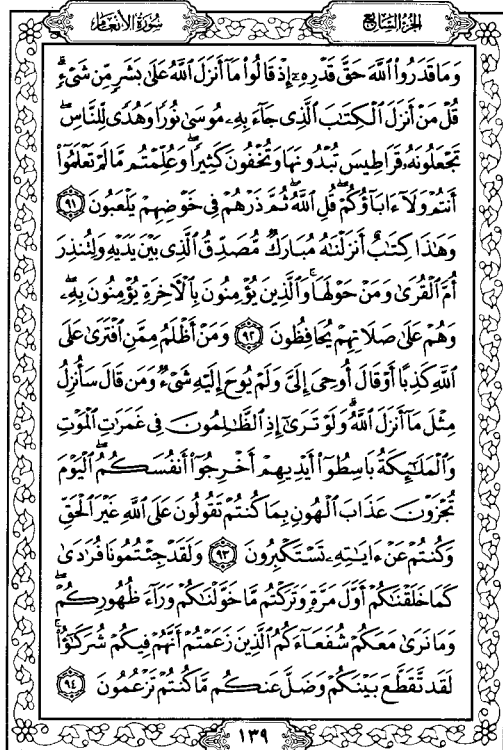 سورة الأنعام
الجزء السابع
وَمَا قَدَرُوا۟ ٱللَّهَ حَقَّ قَدْرِهِۦٓ إِذْ قَالُوا۟ مَآ أَنزَلَ ٱللَّهُ عَلَىٰ بَشَرٍ مِّن شَىْءٍ ۗ
قُلْ مَنْ أَنزَلَ ٱلْكِتَٰبَ ٱلَّذِى جَآءَ بِهِۦ مُوسَىٰ نُورًا وَهُدًى لِّلنَّاسِ ۖ
تَجْعَلُونَهُۥ قَرَاطِيسَ تُبْدُونَهَا وَتُخْفُونَ كَثِيرًا ۖ وَعُلِّمْتُم مَّا لَمْ تَعْلَمُوٓا۟
أَنتُمْ وَلَآ ءَابَآؤُكُمْ ۖ قُلِ ٱللَّهُ ۖ ثُمَّ ذَرْهُمْ فِى خَوْضِهِمْ يَلْعَبُونَ ٩١
وَهَٰذَا كِتَٰبٌ أَنزَلْنَٰهُ مُبَارَكٌ مُّصَدِّقُ ٱلَّذِى بَيْنَ يَدَيْهِ وَلِتُنذِرَ
أُمَّ ٱلْقُرَىٰ وَمَنْ حَوْلَهَا ۚ وَٱلَّذِينَ يُؤْمِنُونَ بِٱلْءَاخِرَةِ يُؤْمِنُونَ بِهِۦ ۖ
وَهُمْ عَلَىٰ صَلَاتِهِمْ يُحَافِظُونَ ٩٢ وَمَنْ أَظْلَمُ مِمَّنِ ٱفْتَرَىٰ عَلَى
ٱللَّهِ كَذِبًا أَوْ قَالَ أُوحِىَ إِلَىَّ وَلَمْ يُوحَ إِلَيْهِ شَىْءٌ وَمَن قَالَ سَأُنزِلُ
مِثْلَ مَآ أَنزَلَ ٱللَّهُ ۗ وَلَوْ تَرَىٰٓ إِذِ ٱلظَّٰلِمُونَ فِى غَمَرَٰتِ ٱلْمَوْتِ
وَٱلْمَلَٰٓئِكَةُ بَاسِطُوٓا۟ أَيْدِيهِمْ أَخْرِجُوٓا۟ أَنفُسَكُمُ ۖ ٱلْيَوْمَ
تُجْزَوْنَ عَذَابَ ٱلْهُونِ بِمَا كُنتُمْ تَقُولُونَ عَلَى ٱللَّهِ غَيْرَ ٱلْحَقِّ
وَكُنتُمْ عَنْ ءَايَٰتِهِۦ تَسْتَكْبِرُونَ ٩٣ وَلَقَدْ جِئْتُمُونَا فُرَٰدَىٰ
كَمَا خَلَقْنَٰكُمْ أَوَّلَ مَرَّةٍ وَتَرَكْتُم مَّا خَوَّلْنَٰكُمْ وَرَآءَ ظُهُورِكُمْ ۖ
وَمَا نَرَىٰ مَعَكُمْ شُفَعَآءَكُمُ ٱلَّذِينَ زَعَمْتُمْ أَنَّهُمْ فِيكُمْ شُرَكَٰٓؤُا۟ ۚ
لَقَد تَّقَطَّعَ بَيْنَكُمْ وَضَلَّ عَنكُم مَّا كُنتُمْ تَزْعُمُونَ ٩٤
١٣٩